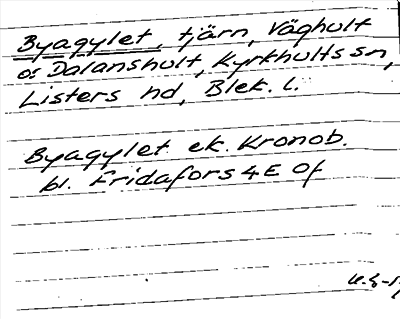 Byagylet, tjärn, Väghult
o. Dalanshult, Kyrkhults sn,
Listers hd, Blek. l.
Byagylet ek. Kronob.
bl. Fridafors 4E Of